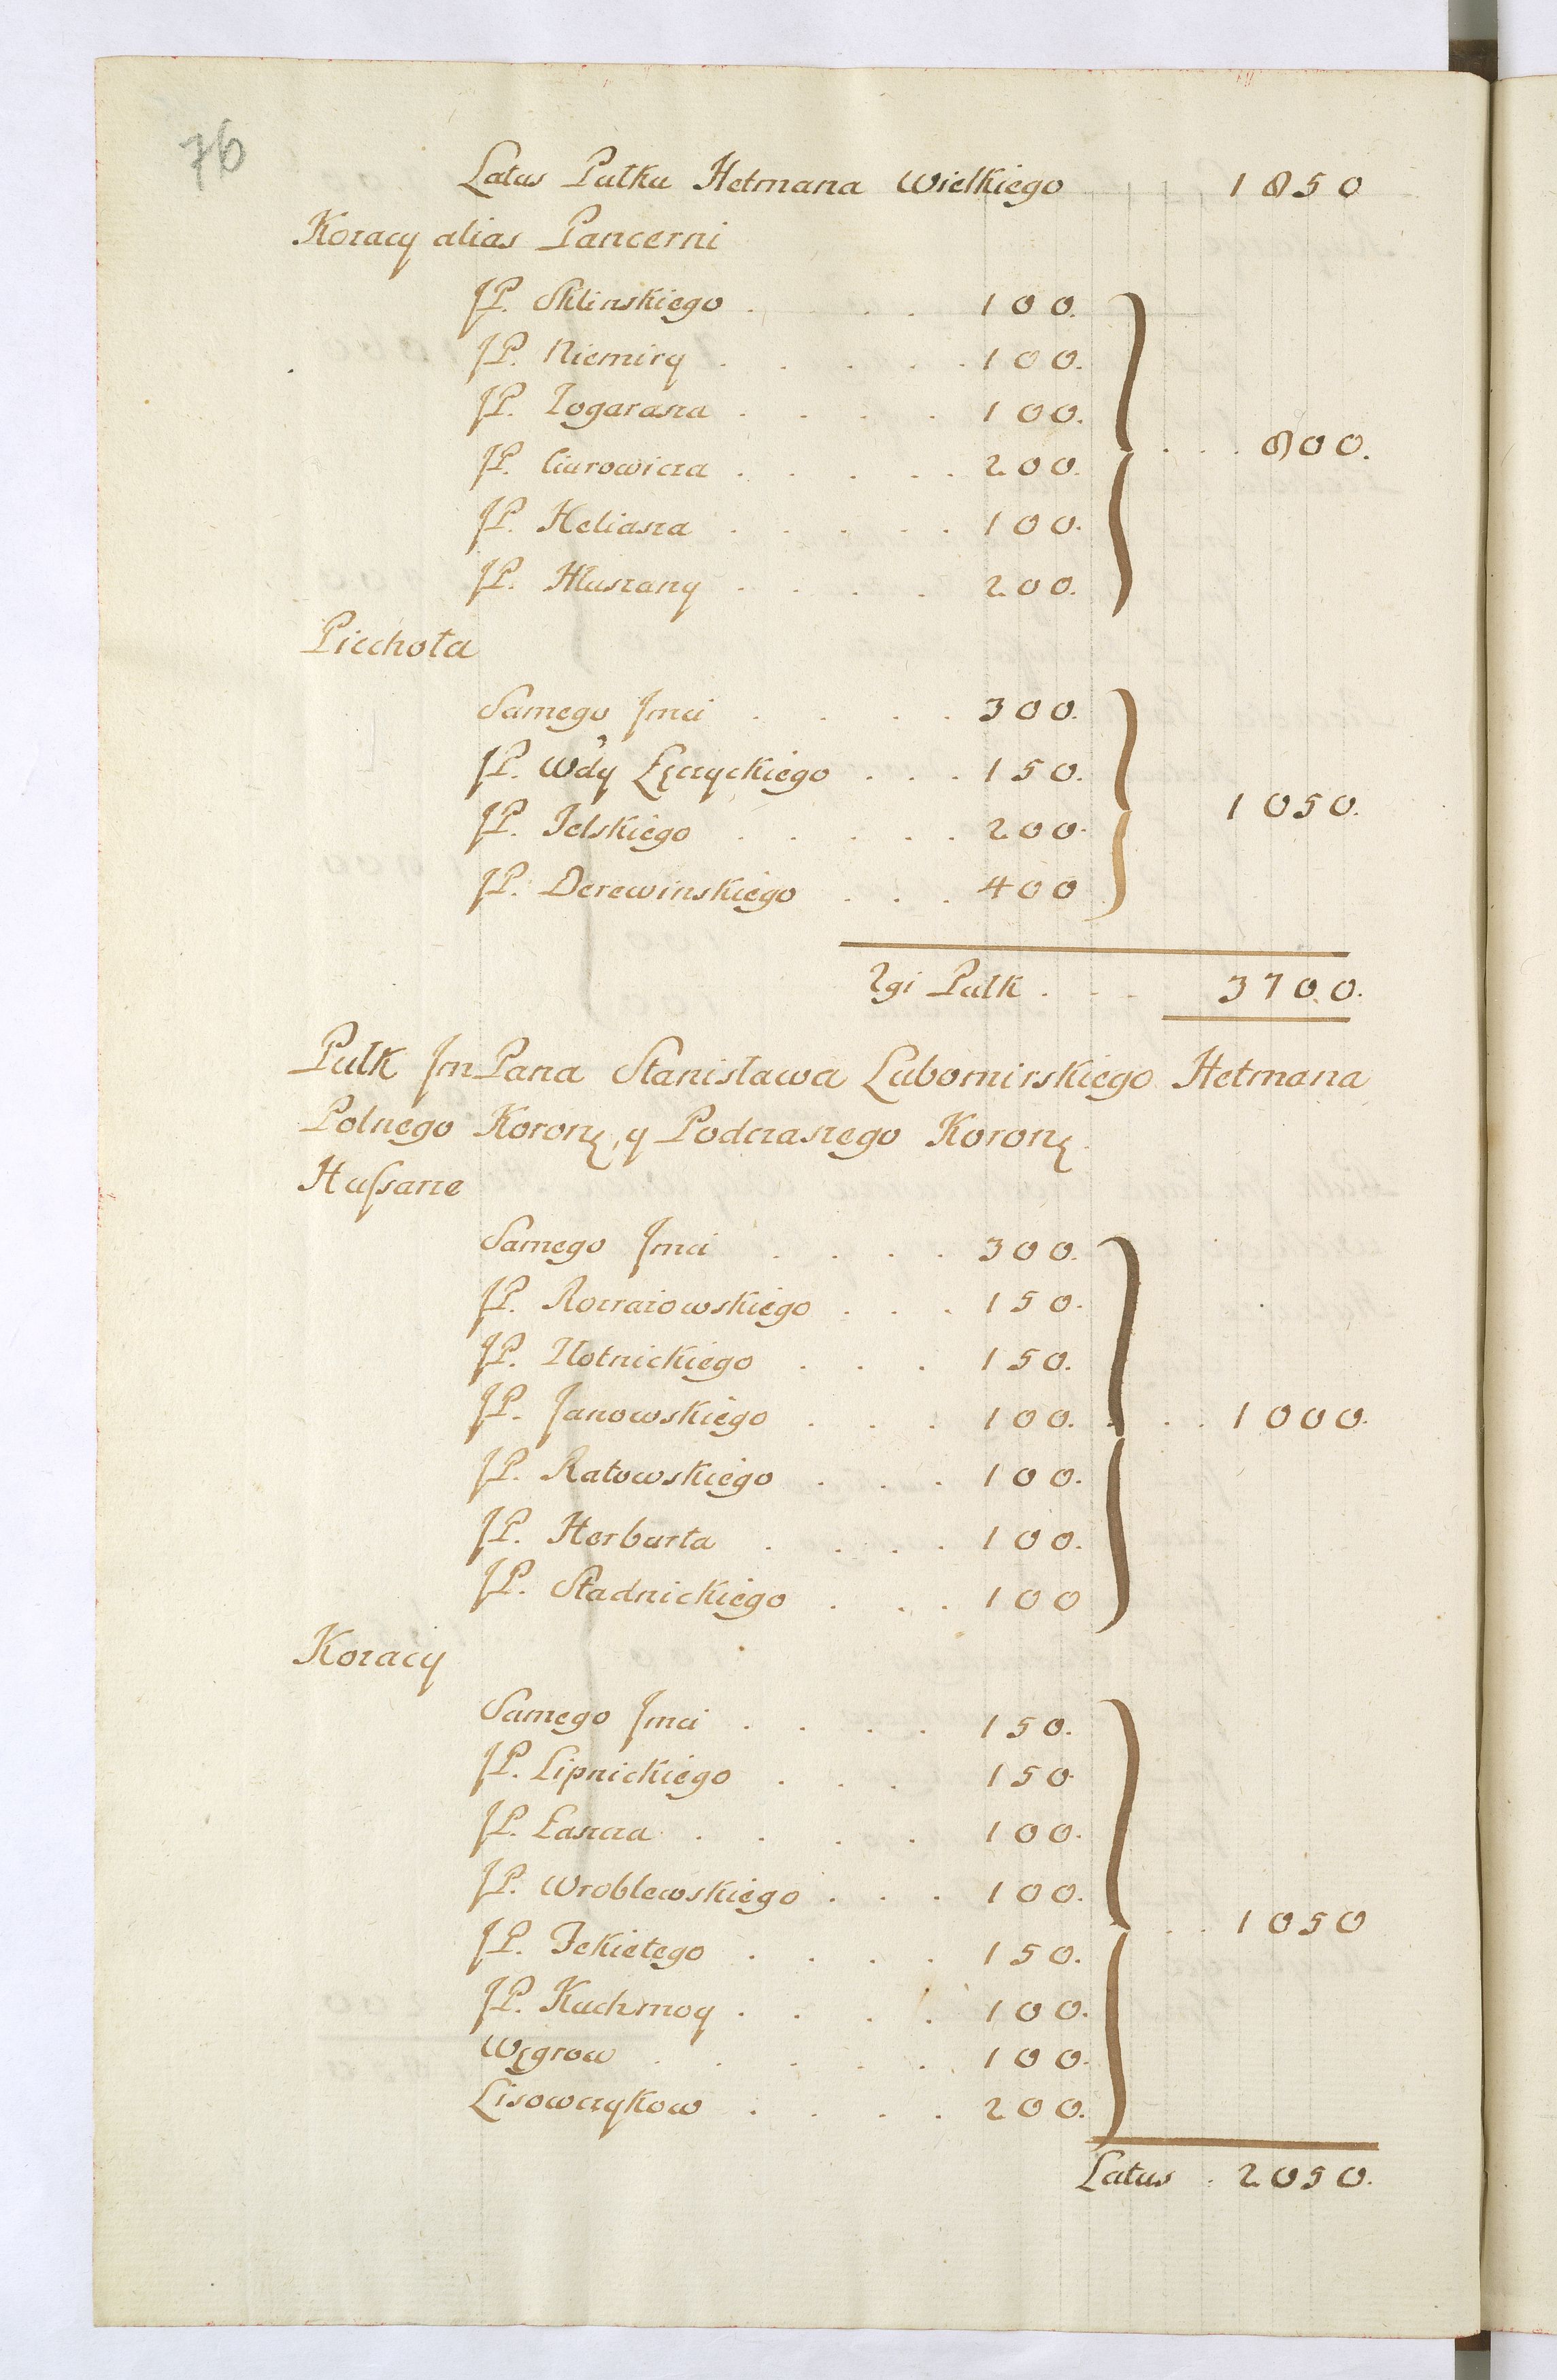 76
Latus Pułku Hetmana Wielkiego 1850
Kozacy alias Pancerni
JP. Sklinskiego . . . 100.
JP. Niemiry . . . . . 100.
JP. Zogarasza . . . . 100.
JP. Ciurowicza . . . . . 200. . . . 800.
JP. Heliasza . . . . . 100.
JP. Hluszany . . . . 200.
Piechota
Samego Jmci . . . . 300.
JP. Wdy Łęczyckiego . . . 150.
JP. Jelskiego . . . . . 200. 1050.
JP. Derewinskiego . . . 400
2gi Pułk . . . 3700.
Pułk Jm Pana Stanisława Lubomirskiego Hetmana
Polnego Koronę, y Podczaszego Koronę.
Hussarze
Samego Jmci . . . . 300.
JP. Rozraiowskiego . . . 150.
JP. Złotnickiego . . . 150.
JP. Janowskiego . . . 100. . . . 1000.
JP. Ratowskiego . . . 100.
JP. Herburta . . . . 100.
JP. Stadnickiego . . . 100
Kozacy
Samego Jmci . . . . 150.
JP. Lipnickiego . . . 150.
JP. Łaszcza . . . . 100.
JP. Wroblewskiego . . . 100. . . 1050
JP. Jekietego . . . . 150.
JP. Kuchmoy . . . . 100.
Węgrow . . . . . 100.
Lisowczykow . . . . 200.
Latus . 2050.